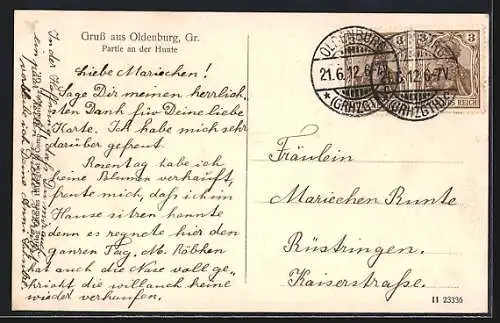 Gruß aus Oldenburg, Gr.
Partie an der Hunte
Liebe Mariechen!
Sage Dir meinen herrlich-
sten Dank für Deine liebe
Karte. Ich habe mich sehr
darüber gefreut.
Rosentag habe ich
keine Blumen verkauft,
freute mich, dass ich im
Hause sitzen konnte
denn es regnete hier den
ganzen Tag. M. Röbken
hat auch die Nase voll ge-
kricht die will auch keine
wieder verkaufen.
In der
OLDENBURG
21.6.12.6-7V.
* (GRHZGT)
3
3
REICH
Fräulein
Mariechen Runte
Rüstringen.
Kaiserstraße.
11 23336